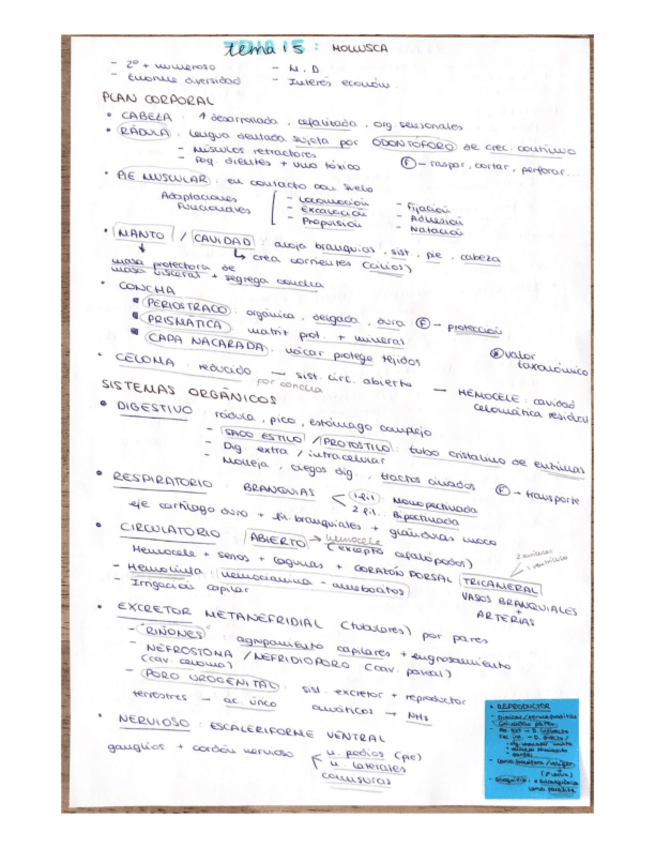 tema 15: MOLLUSCA
- 2º + numeroso - M.D
- Enorme diversidad - Interés económ.
PLAN CORPORAL
• CABEZA: ↑ desarrollada, cefalizada, org sensoriales
• RÁDULA: lengua dentada sujeta por ODONTÓFORO de crec. continuo
- Músculos retractores
- Reg. dientes + uno tóxico
(F) - raspar, cortar, perforar...
• PIE MUSCULAR: en contacto con suelo
Adaptaciones funcionales
- Locomoción - Fijación
- Excavación - Adhesión
- Propulsión - Natación
• MANTO / CAVIDAD: aloja branquias, sist., pie, cabeza
↳ crea corrientes (cilios)
masa protectora de
masa visceral + segrega concha
• CONCHA
PERIOSTRACO: orgánica, delgada, dura (F) - protección
PRISMÁTICA: matriz prot. + mineral
CAPA NACARADA: nácar protege tejidos
valor taxonómico
• CELOMA: reducido → sist. circ. abierto — HEMOCELE: cavidad
por concha
celomática residual
SISTEMAS ORGÁNICOS
• DIGESTIVO: rádula, pico, estómago complejo
- SACO ESTILO / PROTOSTILO: tubo cristalino de enzimas
- Dig extra / intracelular
- Molleja, ciegos dig., tractos ciliados (F) → transporte
• RESPIRATORIO: BRANQUIAS
1 fil: Monopectinada
2 fil: Bipectinada
eje cartílago duro + fil. branquiales + glándulas moco
• CIRCULATORIO: ABIERTO → hemocele
(excepto cefalópodos)
2 aurículas
1 ventrículo
Hemocele + senos + lagunas + CORAZÓN DORSAL TRICAMERAL
- Hemolinfa: hemocianina - amebocitos
VASOS BRANQUIALES
+
ARTERIAS
- Irrigación capilar
• EXCRETOR METANEFRIDIAL (tubulares) por pares
- "RIÑONES": agrupamiento capilares + engrosamiento
- NEFROSTOMA / NEFRIDIOPORO (cav. paleal)
(cav. celoma)
- PORO UROGENITAL: sist. excretor + reproductor
terrestres → ac. úrico acuáticos → NH3
• NERVIOSO: ESCALERIFORME VENTRAL
ganglios + cordón nervioso
n. pedios (pie)
n. laterales
comisuras
• REPRODUCTOR